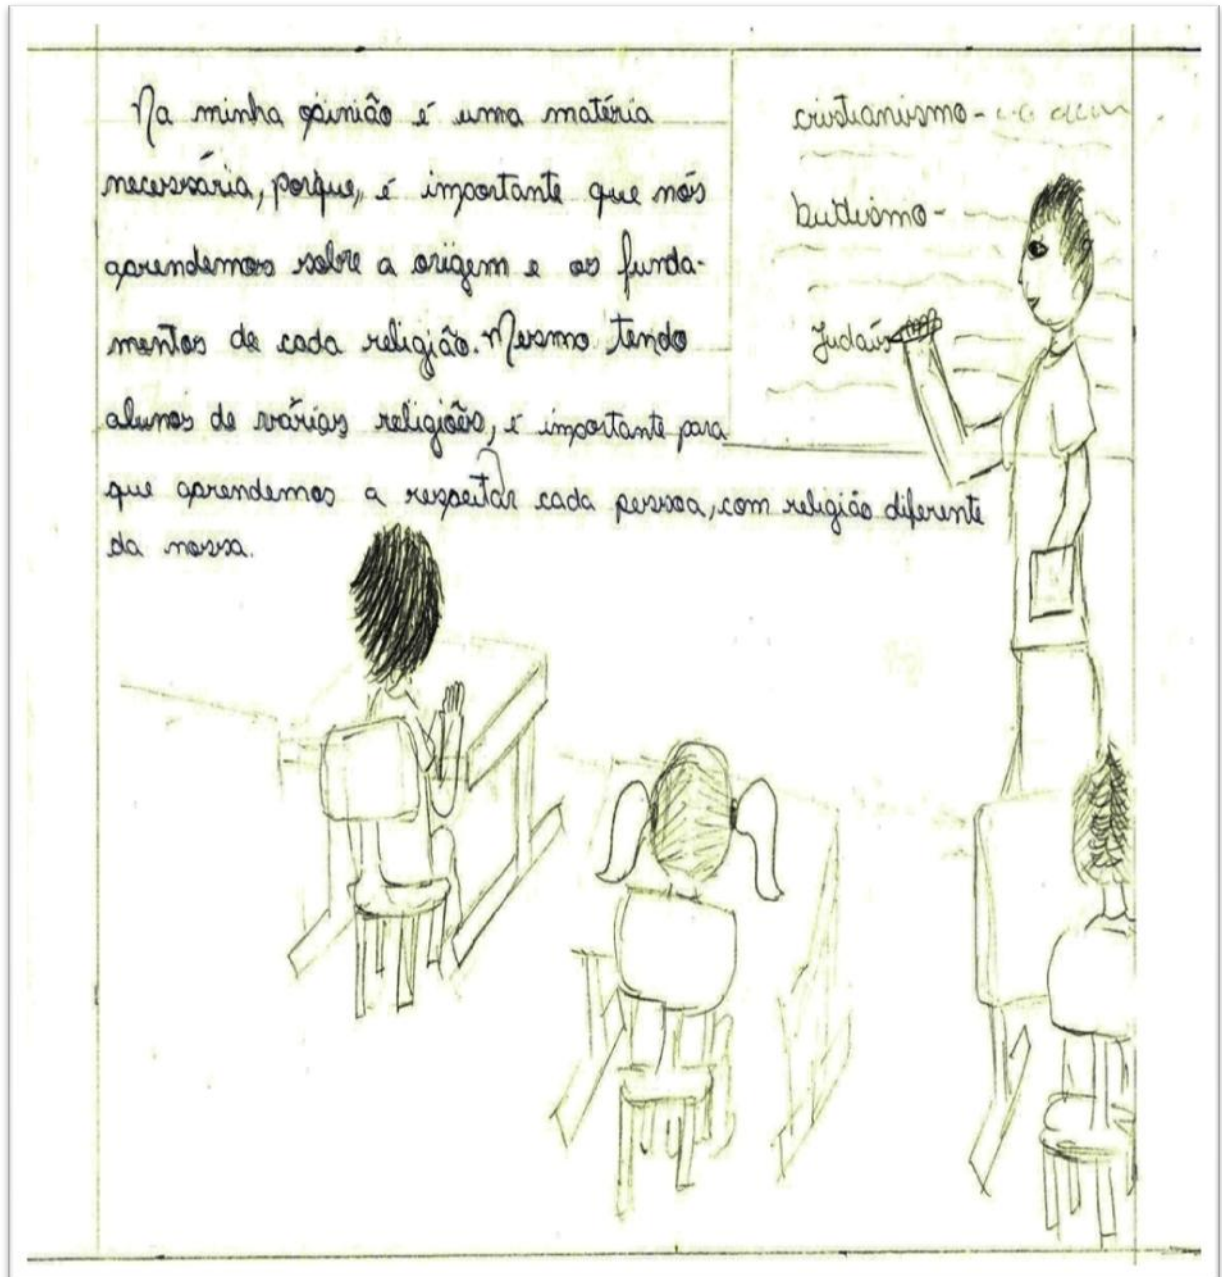 Na minha opinião é uma matéria
necessária, porque, é importante que nós
aprendemos sobre a origem e os funda-
mentos de cada religião. Mesmo tendo
alunos de várias religiões, é importante para
que aprendemos a respeitar cada pessoa, com religião diferente
da nossa.
cristianismo -
budismo -
Judaís